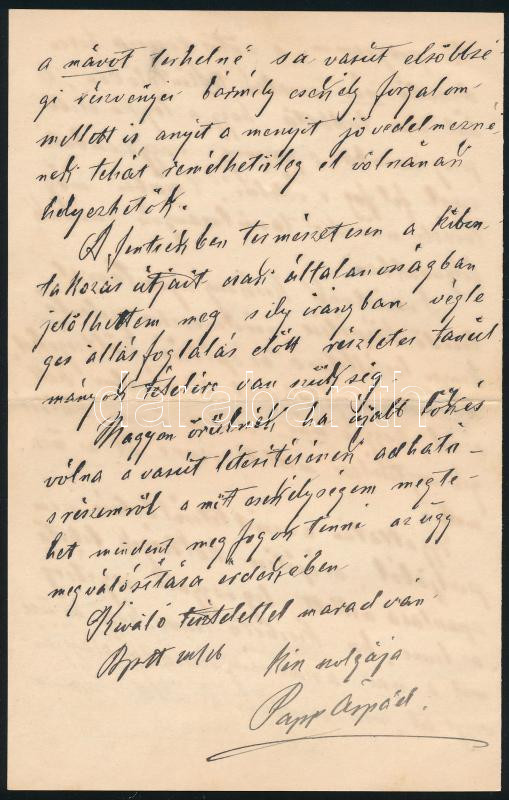 a mávot terhelné sa vasút elsőbbsé
gi részvényei bármely csekély forgalom
mellett is anyit a menyit jövedelmezné
nek tehát remélhetőleg el volnának
helyezhetők.
A fentiekben természetesen a kiben
takozás útjait csak általanosságban
jelölhettem meg s ily irányban végle
ges állásfoglalás előtt részletes tanúl
mányok tételére van szükség
Magyon örülnék ha újabb lökés
vólna a vasút létesitésének adható
s részemről a mit csekélységem megte
het mindent meg fogok tenni az ügy
megvalósitása érdekében
Kiváló tisztelettel maradván
Bpest
kész szolgája
Papp Árpád.
darabanth